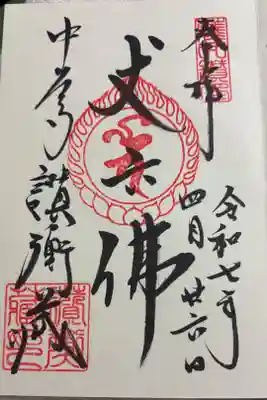 奉拝
令和七年
四月廿六日
丈六佛
中尊寺
讃衡蔵